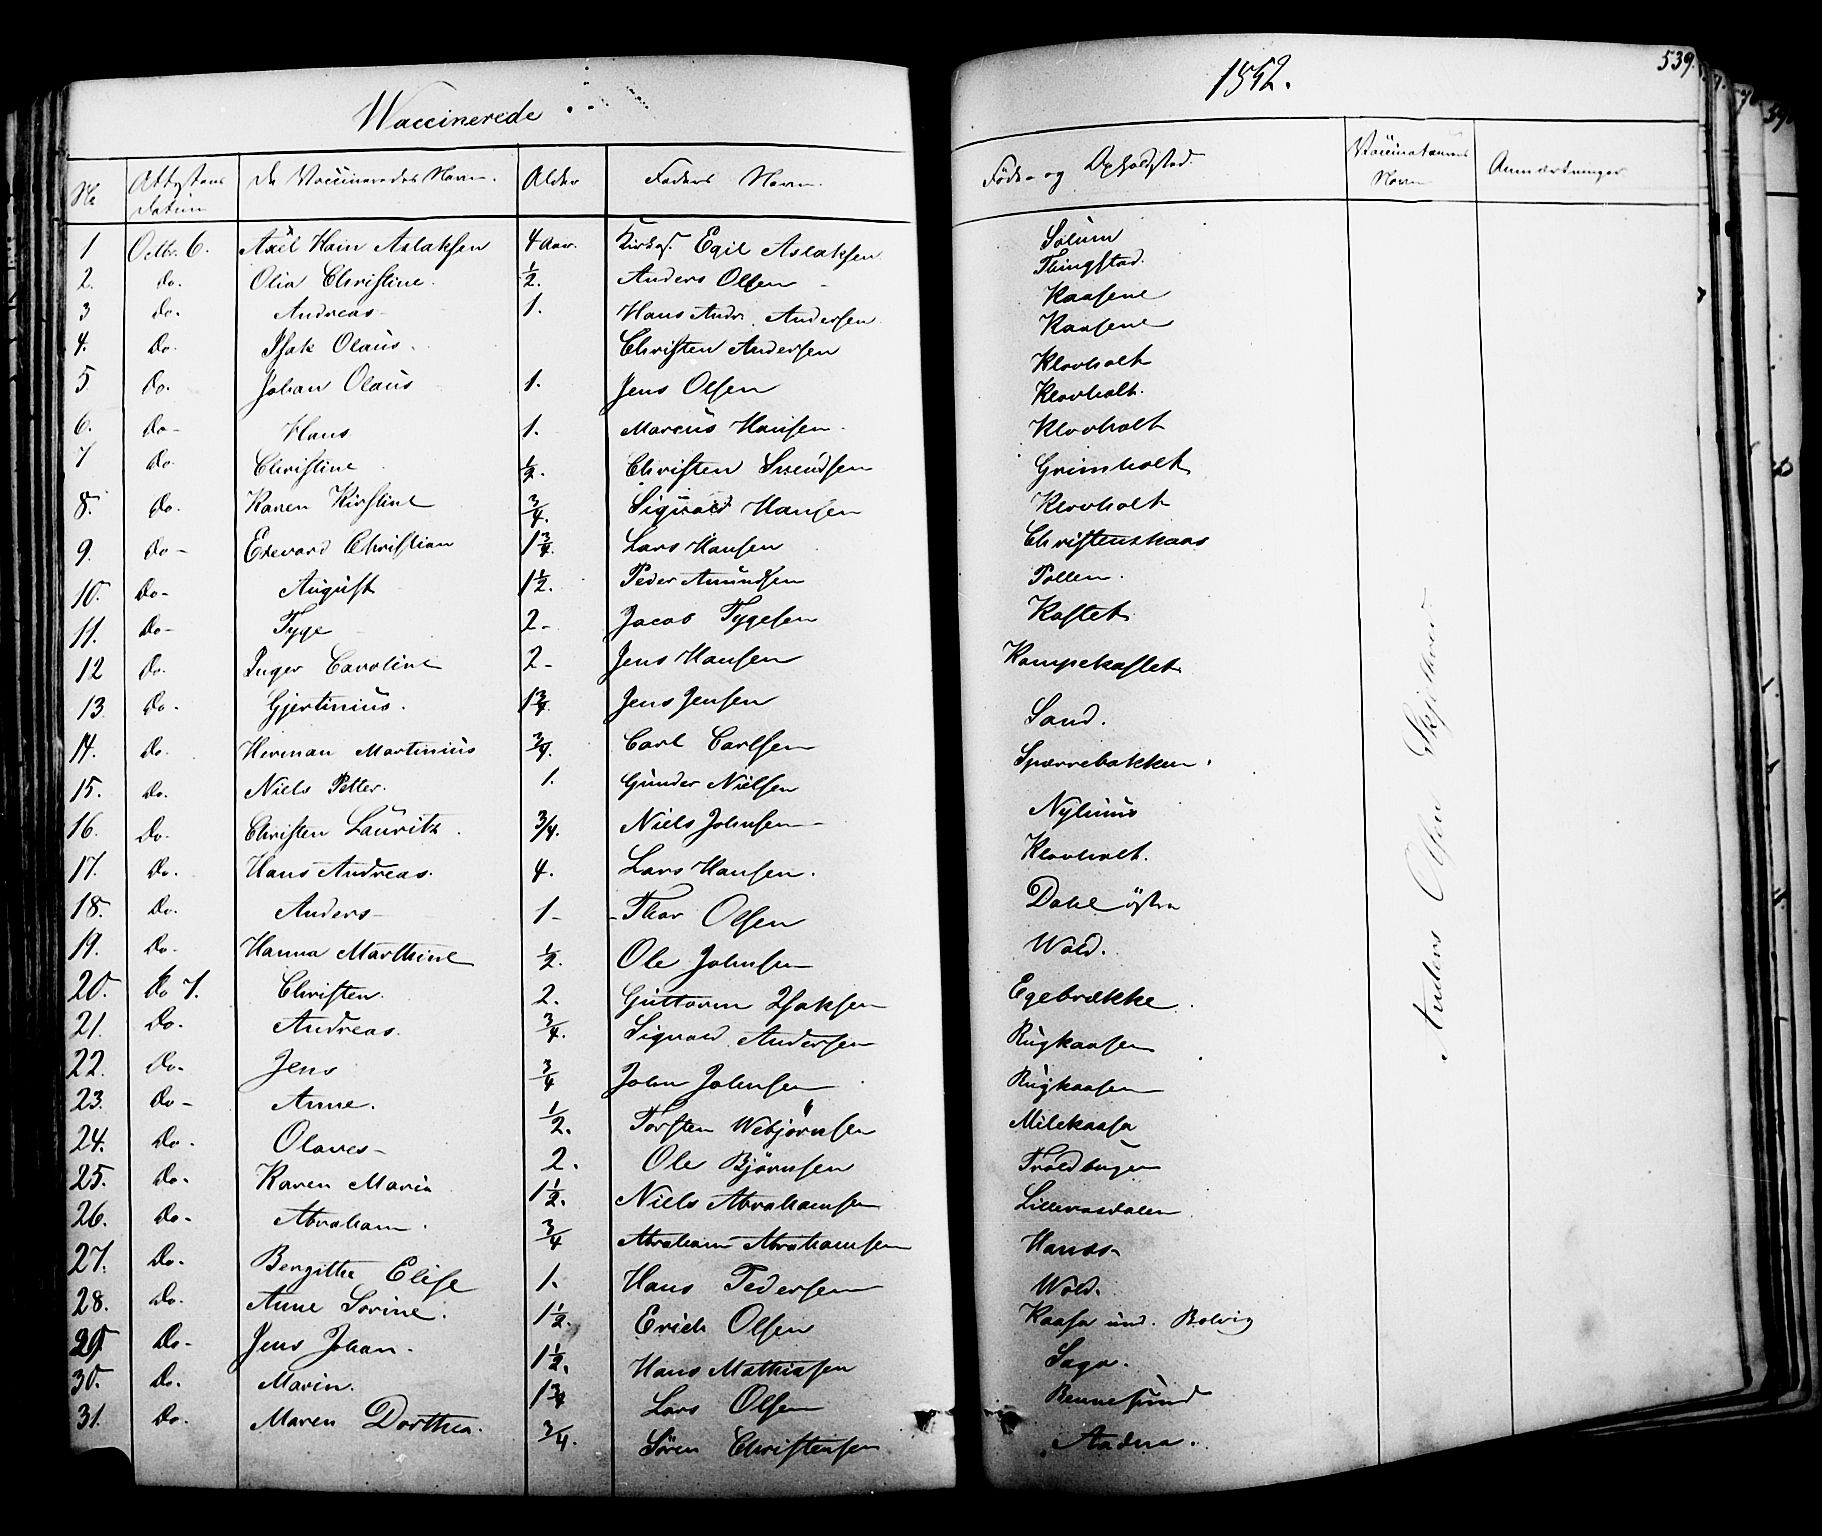 Waccinerede
1852.
539.
No
Attestens Datum
De Vaccineredes Navn.
Alder
Faders Navn.
Føde- og Opholdsstad.
Vaccinateurens Navn
Anmærkninger
1 Octbr. 6. Axel Hain Aslaksen 4 Aar. Kirkes. Egil Aslaksen Solum
2. Do. Olia Christine. 1/2. Anders Olsen Thingstad.
3 Do. Andreas 1. Hans Andr. Andersen Kaasene
4. Do. Isak Olaus. Christen Andersen Kaasene
5 Do. Johan Olaus 1. Jens Olsen Klovholt
6. Do- Hans 1. Marcus Hansen. Klovholt.
7 Do. Christine 1/2. Christen Svendsen Klovholt
8. Do. Karen Kirstine 3/4. Sigvald Hansen Grimholt
9. Do- Edevard Christian 1 3/4. Lars Hansen Klovholt
10. Do- August 1 1/2. Peder Amundsen Christenskaas
11. Do- Tyge 2- Jacob Tygesen Pollen.
12 Do. Inger Caroline 2- Jens Hansen Kastet.
13. Do. Gjertinius. 1 3/4. Jens Jensen Kampekastet.
14. Do. Herman Martinius 3/4. Carl Carlsen Sand.
15. Do. Niels Petter. 1. Gunder Nielsen Spærrebakken.
16. Do. Christen Lauritz. 3/4. Niels Johnsen- Nylund
17. Do. Hans Andreas. 4. Lars Hansen. Klovholt.
18. Do. Anders- 1- Thor Olsen Dahl östre
19. Do. Hanna Marthine 1/2. Ole Johnsen Wold.
20. Do 7. Christen. 2. Guttorm Isaksen Egebrække.
21. Do. Andreas. 3/4. Sigvald Andersen Rugkaasen
22. Do. Jens 3/4 John Johnsen Rugkaasen
23. Do- Anne. 1/2. Torsten Webjørnsen Milekaasa
24. Do. Olaves- 2. Ole Bjørnsen Troldbugen
25. Do. Karen Maria 1 1/2. Niels Abrahamsen Lilleraasdalen
26. Do- Abraham. 3/4 Abraham Abrahamsen
27. Do. Bergithe Elise 1. Hans Pedersen Wold.
28. Do. Anne Sorine. 1 1/2. Erich Olsen Kaasa und. Bolvig
29 Do- Jens Johan. 1 1/2. Hans Mathiasen Saga.
30. Do. Maria. 1 3/4 Lars Olsen Bennesund
31. Do. Maren Dorthea. 3/4. Sören Christensen
Anders Olsen